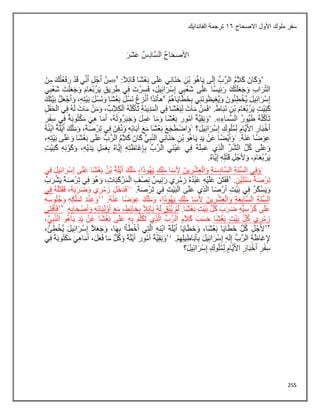 سفر ملوك الأول الاصحاح ١٦ ترجمة الفاندايك
اَلأَصْحَاحُ السَّادِسُ عَشَرَ
١وَكَانَ كَلاَمُ الرَّبِّ إِلَى يَاهُوَ بْنِ حَنَانِي عَلَى بَعْشَا قَائِلاً: ٢«مِنْ أَجْلِ أَنِّي قَدْ رَفَعْتُكَ مِنَ
التُّرَابِ وَجَعَلْتُكَ رَئِيسًا عَلَى شَعْبِي إِسْرَائِيلَ، فَسِرْتَ فِي طَرِيقِ يَرُبْعَامَ وَجَعَلْتَ شَعْبِي
إِسْرَائِيلَ يُخْطِئُونَ وَيُغِيظُونَنِي بِخَطَايَاهُمْ، ٣هأَنَذَا أَنْزِعُ نَسْلَ بَعْشَا وَنَسْلَ بَيْتِهِ، وَأَجْعَلُ بَيْتَكَ
كَبَيْتِ يَرُبْعَامَ بْنِ نَبَاطَ. ٤فَمَنْ مَاتَ لِبَعْشَا فِي الْمَدِينَةِ تَأْكُلُهُ الْكِلاَبُ، وَمَنْ مَاتَ لَهُ فِي الْحَقْلِ
تَأْكُلُهُ طُيُورُ السَّمَاءِ». ٥وَبَقِيَّةُ أُمُورِ بَعْشَا وَمَا عَمِلَ وَجَبَرُوتُهُ، أَمَا هِيَ مَكْتُوبَةٌ فِي سِفْرِ
أَخْبَارِ الأَيَّامِ لِمُلُوكِ إِسْرَائِيلَ؟ ٦وَاضْطَجَعَ بَعْشَا مَعَ آبَائِهِ وَدُفِنَ فِي تِرْصَةَ، وَمَلَكَ أَيْلَةُ ابْنُهُ
عِوَضًا عَنْهُ. ٧وَأَيْضًا عَنْ يَدِ يَاهُوَ بْنِ حَنَانِي النَّبِيِّ كَانَ كَلاَمُ الرَّبِّ عَلَى بَعْشَا وَعَلَى بَيْتِهِ،
وَعَلَى كُلِّ الشَّرِّ الَّذِي عَمِلَهُ فِي عَيْنَيِ الرَّبِّ بِإِغَاظَتِهِ إِيَّاهُ بِعَمَلِ يَدَيْهِ، وَكَوْنِهِ كَبَيْتِ
يَرُبْعَامَ، وَلأَجْلِ قَتْلِهِ إِيَّاهُ.
٨وَفِي السَّنَةِ السَّادِسَةِ وَالْعِشْرِينَ لآسَا مَلِكِ يَهُوذَا، مَلَكَ أَيْلَةُ بْنُ بَعْشَا عَلَى إِسْرَائِيلَ فِي
تِرْصَةَ سَنَتَيْنِ. ٩فَفَتَنَ عَلَيْهِ عَبْدُهُ زِمْرِي رَئِيسُ نِصْفِ الْمَرْكَبَاتِ، وَهُوَ فِي تِرْصَةَ يَشْرَبُ
وَيَسْكَرُ فِي بَيْتِ أَرْصَا الَّذِي عَلَى الْبَيْتِ فِي تِرْصَةَ. ١٠فَدَخَلَ زِمْرِي وَضَرَبَهُ، فَقَتَلَهُ فِي
السَّنَةِ السَّابِعَةِ وَالْعِشْرِينَ لآسَا مَلِكِ يَهُوذَا، وَمَلَكَ عِوَضًا عَنْهُ. ١١وَعِنْدَ تَمَلُّكِهِ وَجُلُوسِهِ
عَلَى كُرْسِيِّهِ ضَرَبَ كُلَّ بَيْتِ بَعْشَا. لَمْ يُبْقِ لَهُ بَائِلاً بِحَائِطٍ، مَعَ أَوْلِيَائِهِ وَأَصْحَابِهِ. ١٢فَأَفْنَى
زِمْرِي كُلَّ بَيْتِ بَعْشَا حَسَبَ كَلاَمِ الرَّبِّ الَّذِي تَكَلَّمَ بِهِ عَلَى بَعْشَا عَنْ يَدِ يَاهُوَ النَّبِيِّ،
١٣لأَجْلِ كُلِّ خَطَايَا بَعْشَا، وَخَطَايَا أَيْلَةَ ابْنِهِ الَّتِي أَخْطَأَ بِهَا، وَجَعَلاَ إِسْرَائِيلَ يُخْطِئُ،
لإِغَاظَةِ الرَّبِّ إِلهِ إِسْرَائِيلَ بِأَبَاطِيلِهِمْ. ١٤وَبَقِيَّةُ أُمُورِ أَيْلَةَ وَكُلُّ مَا فَعَلَ، أَمَا هِيَ مَكْتُوبَةٌ فِي
سِفْرِ أَخْبَارِ الأَيَّامِ لِمُلُوكِ إِسْرَائِيلَ؟
255